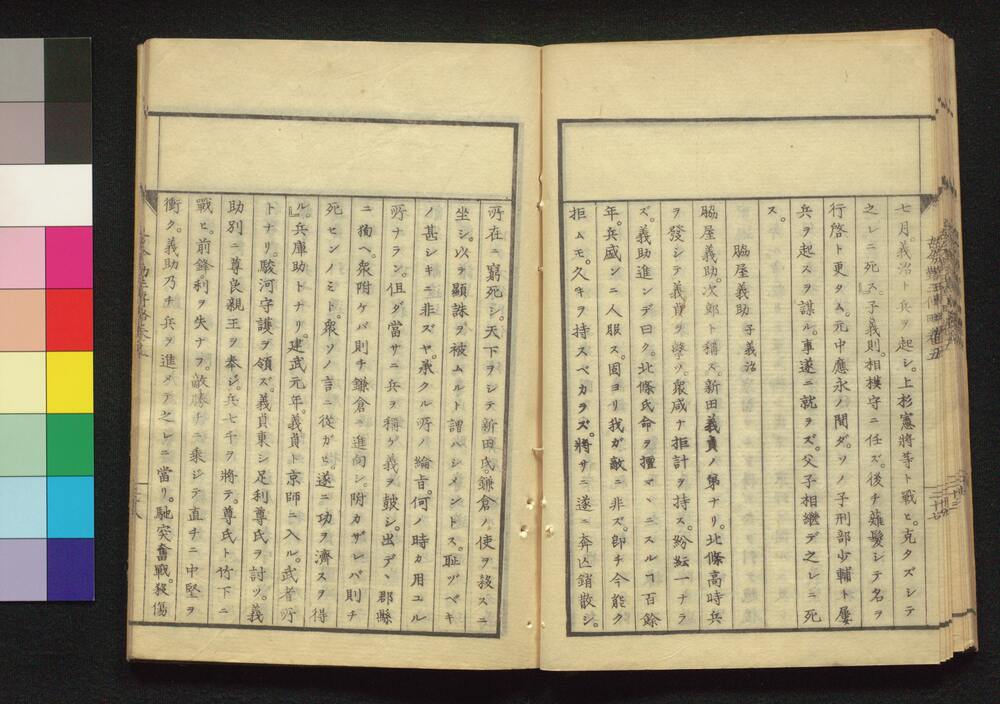 七月。義治ト兵ヲ起シ。上杉憲將等ト戰ヒ。克タズシテ
之レニ死ス』子義則。相摸守ニ任ズ。後チ薙髮シテ名ヲ
行啓ト更タム。元中應永ノ間ダ。ソノ子刑部少輔ト屢
兵ヲ起スヲ謀ル。事遂ニ就ヲズ。父子相繼デ之レニ死
ス。
脇屋義助 子義治
脇屋義助。次郎ト稱ス。新田義貞ノ弟ナリ。北條高時兵
ヲ發シテ義貞ヲ擊ツ。衆咸ナ拒計ヲ持ス。紛紜一ナラ
ズ。義助進ンデ曰ク。北條氏命ヲ擅マヽニスルヿ百餘
年。兵盛ンニ人服ス。固ヨリ我ガ敵ニ非ズ。卽チ今能ク
拒ムモ。久キヲ持スベカラズ。將サニ遂ニ奔亡銷散シ。
所在ニ窮死シ。天下ヲシテ新田氏。鎌倉ノ使ヲ殺スニ
坐シ。以ヲ顯誅ヲ被ムルト謂ハシメントス。恥ヅベキ
ノ甚シキニ非ズヤ。承クル所ノ綸旨。何ノ時カ用ユル
所ナラン。但ダ當サニ兵ヲ稱ゲ義ヲ鼓シ。出デヽ郡縣
ニ徇ヘ。衆附ケバ則チ鎌倉ニ進向シ。附カザレバ則チ
死センノミト。衆ソノ言ニ從ガヒ。遂ニ功ヲ濟スヲ得
ル』兵庫助トナリ。建武元年。義貞ト京師ニ入ル。武者所
トナリ。駿河守護ヲ領ス。義貞東シ足利尊氏ヲ討ツ。義
助別ニ尊良親王ヲ奉ジ。兵七千ヲ將テ。尊氏ト竹下ニ
戰ヒ。前鋒利ヲ失ナフ。敵勝チニ乘ジテ直チニ中堅ヲ
衝ク。義助乃チ兵ヲ進メテ之レニ當リ。馳突奮戰。殺傷